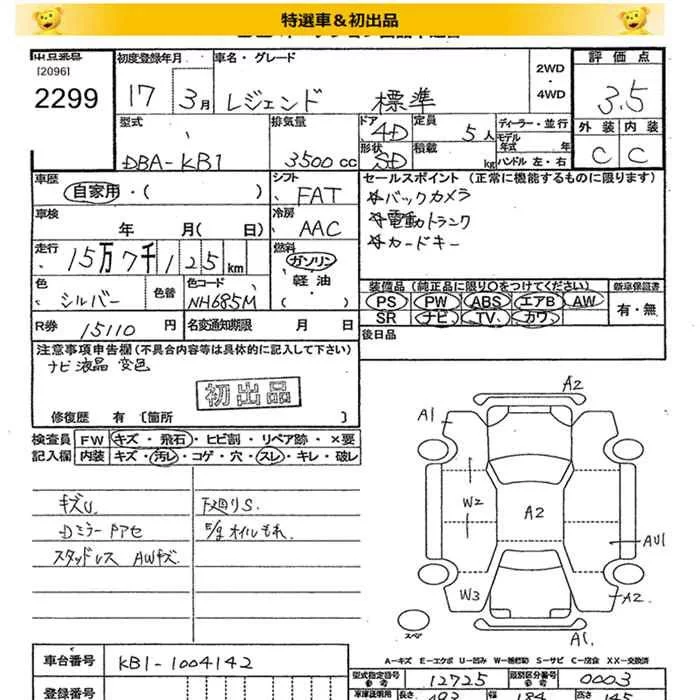 特選車＆初出品
出品番号 初度登録年月 車名・グレード 評価点
[2096]
2299 17 3月 レジェンド 標準 2WD・4WD 3.5
型式 排気量 ドア 4D 定員 5人 ディーラー・並行 外装 内装
モデル年式 年
DBA-KB1 3500cc 形状 SD 積載 kg ハンドル 左・右 C C
車歴 自家用・( ) シフト FAT セールスポイント (正常に機能するものに限ります)
車検 年 月( 日) 冷房 AAC
バックカメラ
電動トランク
カードキー
走行 15万7千125km 燃料 ガソリン・軽油・
色 シルバー 色替 色コード NH685M
装備品 (純正品に限り○をつけてください) 新車保証書
PS PW ABS エアB AW 有・無
SR ナビ TV カワ
R券 15110円 名変通知期限 月 日 後日品
注意事項申告欄 (不具合内容等は具体的に記入して下さい)
ナビ液晶 変色
初出品
修復歴 有 [箇所 ]
検査員 FW キズ・飛石・ヒビ割・リペア跡・×要
記入欄 内装 キズ・汚レ・コゲ・穴・スレ・キレ・破レ
キズU. 下廻りS.
Dミラー アセ E/g オイルもれ.
スタッドレス AWキズ.
A2
A1
W2
A2
AU1
W3
A2
A1.
スペア
A－キズ E－エクボ U－凹み W－補修跡 S－サビ C－腐食 XX－交換済
車台番号 KB1-1004142
型式指定番号 参考 12725 類別区分番号 参考 0003
登録番号
長さ 493 幅 184 高さ 145